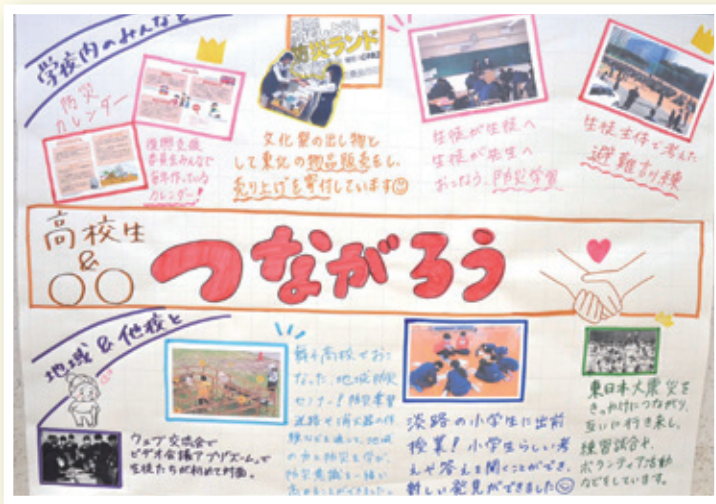 学校内のみんなと
防災
カレンダー
復興支援
委員会みんなで
毎年作っている
カレンダー!
防災ランド
文化祭の出し物と
して東北の物品販売をし、
売り上げを寄付しています
生徒が生徒へ
生徒が先生へ
おこなう、防災学習
生徒主体で考えた
避難訓練
高校生
&
○○
つながろう
地域&他校と
ウェブ交流会で
ビデオ会議アプリ"ズーム"で
生徒たちが初めて対面。
高校でおこ
なった、地域防災
セミナー!
迷路や消火器の体
験などを通して、地域
の方と防災を学び、
防災意識を一緒に
高めることができました。
淡路の小学生に出前
授業!小学生らしい考
えや答えを聞くことができ、
新しい発見ができました
東日本大震災を
きっかけにつながり、
互いに行き来し、
練習試合や、
ボランティア活動
などをしています。